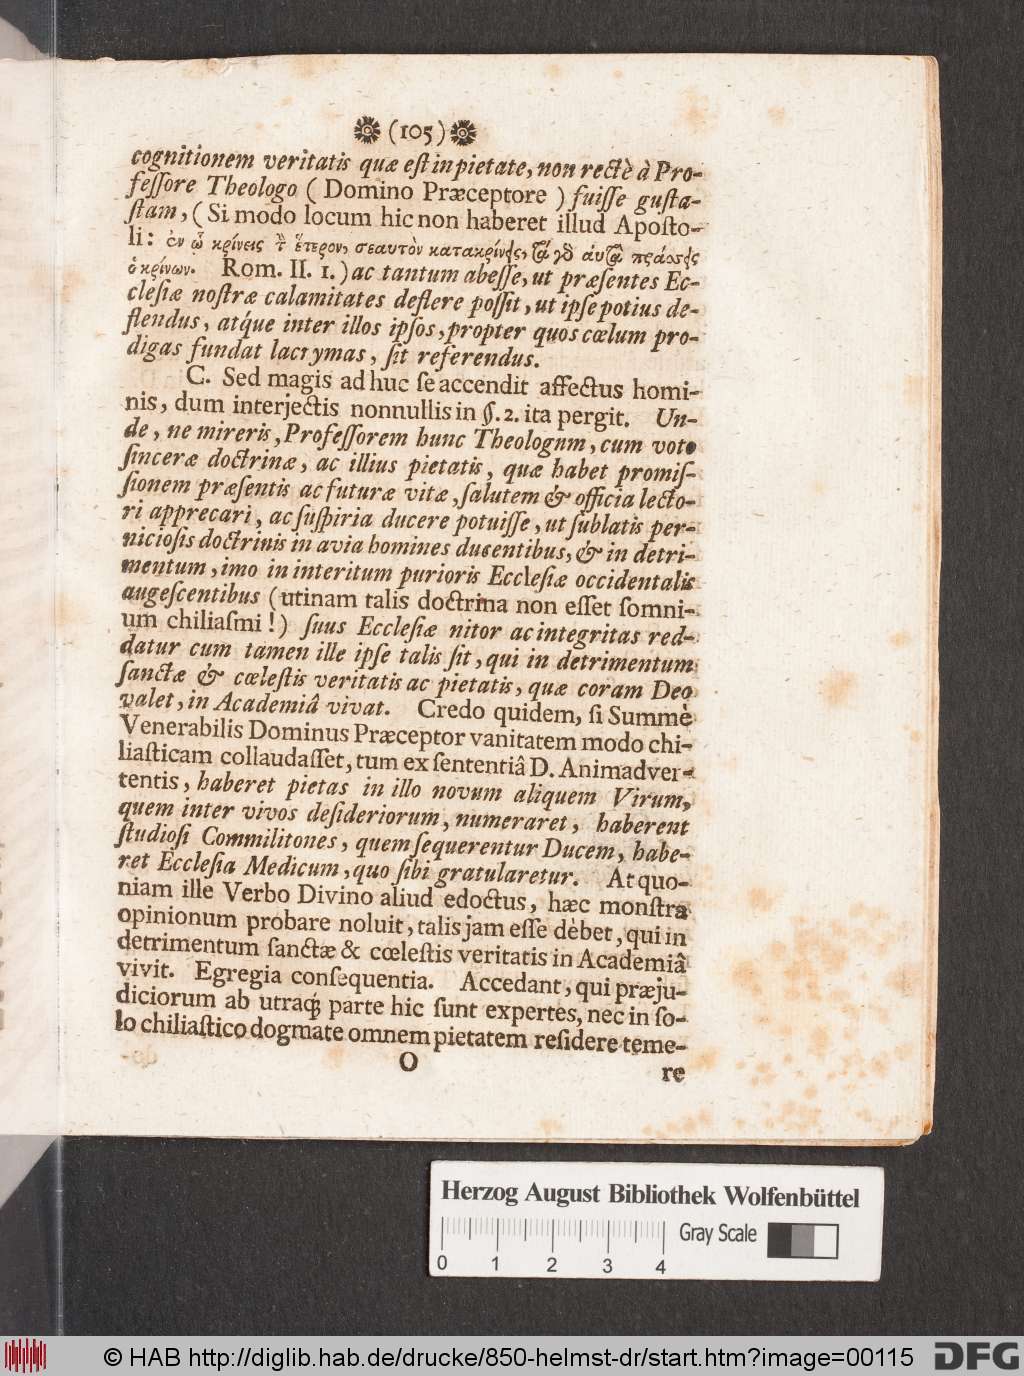 (105)
cognitionem veritatis quæ est in pietate, non rectè à Pro-
fessore Theologo (Domino Præceptore) fuisse gusta-
stam, (Si modo locum hic non haberet illud Aposto-
li: ἐν ᾧ κρίνεις τ ἕτερον, σεαυτὸν κατακρίνεις, τὰ γδ ἀυτὰ πράσσεις
ὁ κρίνων. Rom. II. 1.) ac tantum abesse, ut præsentes Ec-
clesiæ nostræ calamitates deflere possit, ut ipse potius de-
flendus, atq́ue inter illos ipsos, propter quos cœlum pro-
digas fundat lacrymas, sit referendus.
C. Sed magis adhuc se accendit affectus homi-
nis, dum interjectis nonnullis in §. 2. ita pergit. Un-
de, ne mireris, Professorem hunc Theolognm, cum voto
sinceræ doctrinæ, ac illius pietatis, quæ habet promis-
sionem præsentis ac futuræ vitæ, salutem & officia lecto-
ri apprecari, ac suspiria ducere potuisse, ut sublatis per-
niciosis doctrinis in avia homines ducentibus, & in detri-
mentum, imo in interitum purioris Ecclesiæ occidentalis
augescentibus (utinam talis doctrina non esset somni-
um chiliasmi!) suus Ecclesiæ nitor ac integritas red-
datur cum tamen ille ipse talis sit, qui in detrimentum
sanctæ & cœlestis veritatis ac pietatis, quæ coram Deo
valet, in Academiâ vivat. Credo quidem, si Summè
Venerabilis Dominus Præceptor vanitatem modo chi-
liasticam collaudasset, tum ex sententiâ D. Animadver-
tentis, haberet pietas in illo novum aliquem Virum,
quem inter vivos desideriorum, numeraret, haberent
studiosi Commilitones, quem sequerentur Ducem, habe-
ret Ecclesia Medicum, quo sibi gratularetur. At quo-
niam ille Verbo Divino aliud edoctus, hæc monstra
opinionum probare noluit, talis jam esse dèbet, qui in
detrimentum sanctæ & cœlestis veritatis in Academiâ
vivit. Egregia consequentia. Accedant, qui præju-
diciorum ab utraq́; parte hic sunt expertes, nec in so-
lo chiliastico dogmate omnem pietatem residere teme-
O
re
Herzog August Bibliothek Wolfenbüttel
Gray Scale
0 1 2 3 4
© HAB http://diglib.hab.de/drucke/850-helmst-dr/start.htm?image=00115
DFG